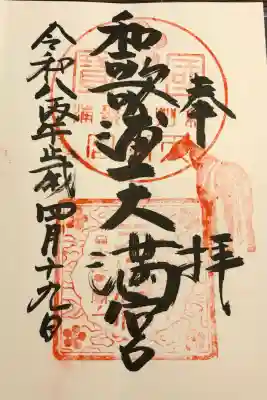 奉拝
和歌浦天満宮
令和八年歳四月十九日